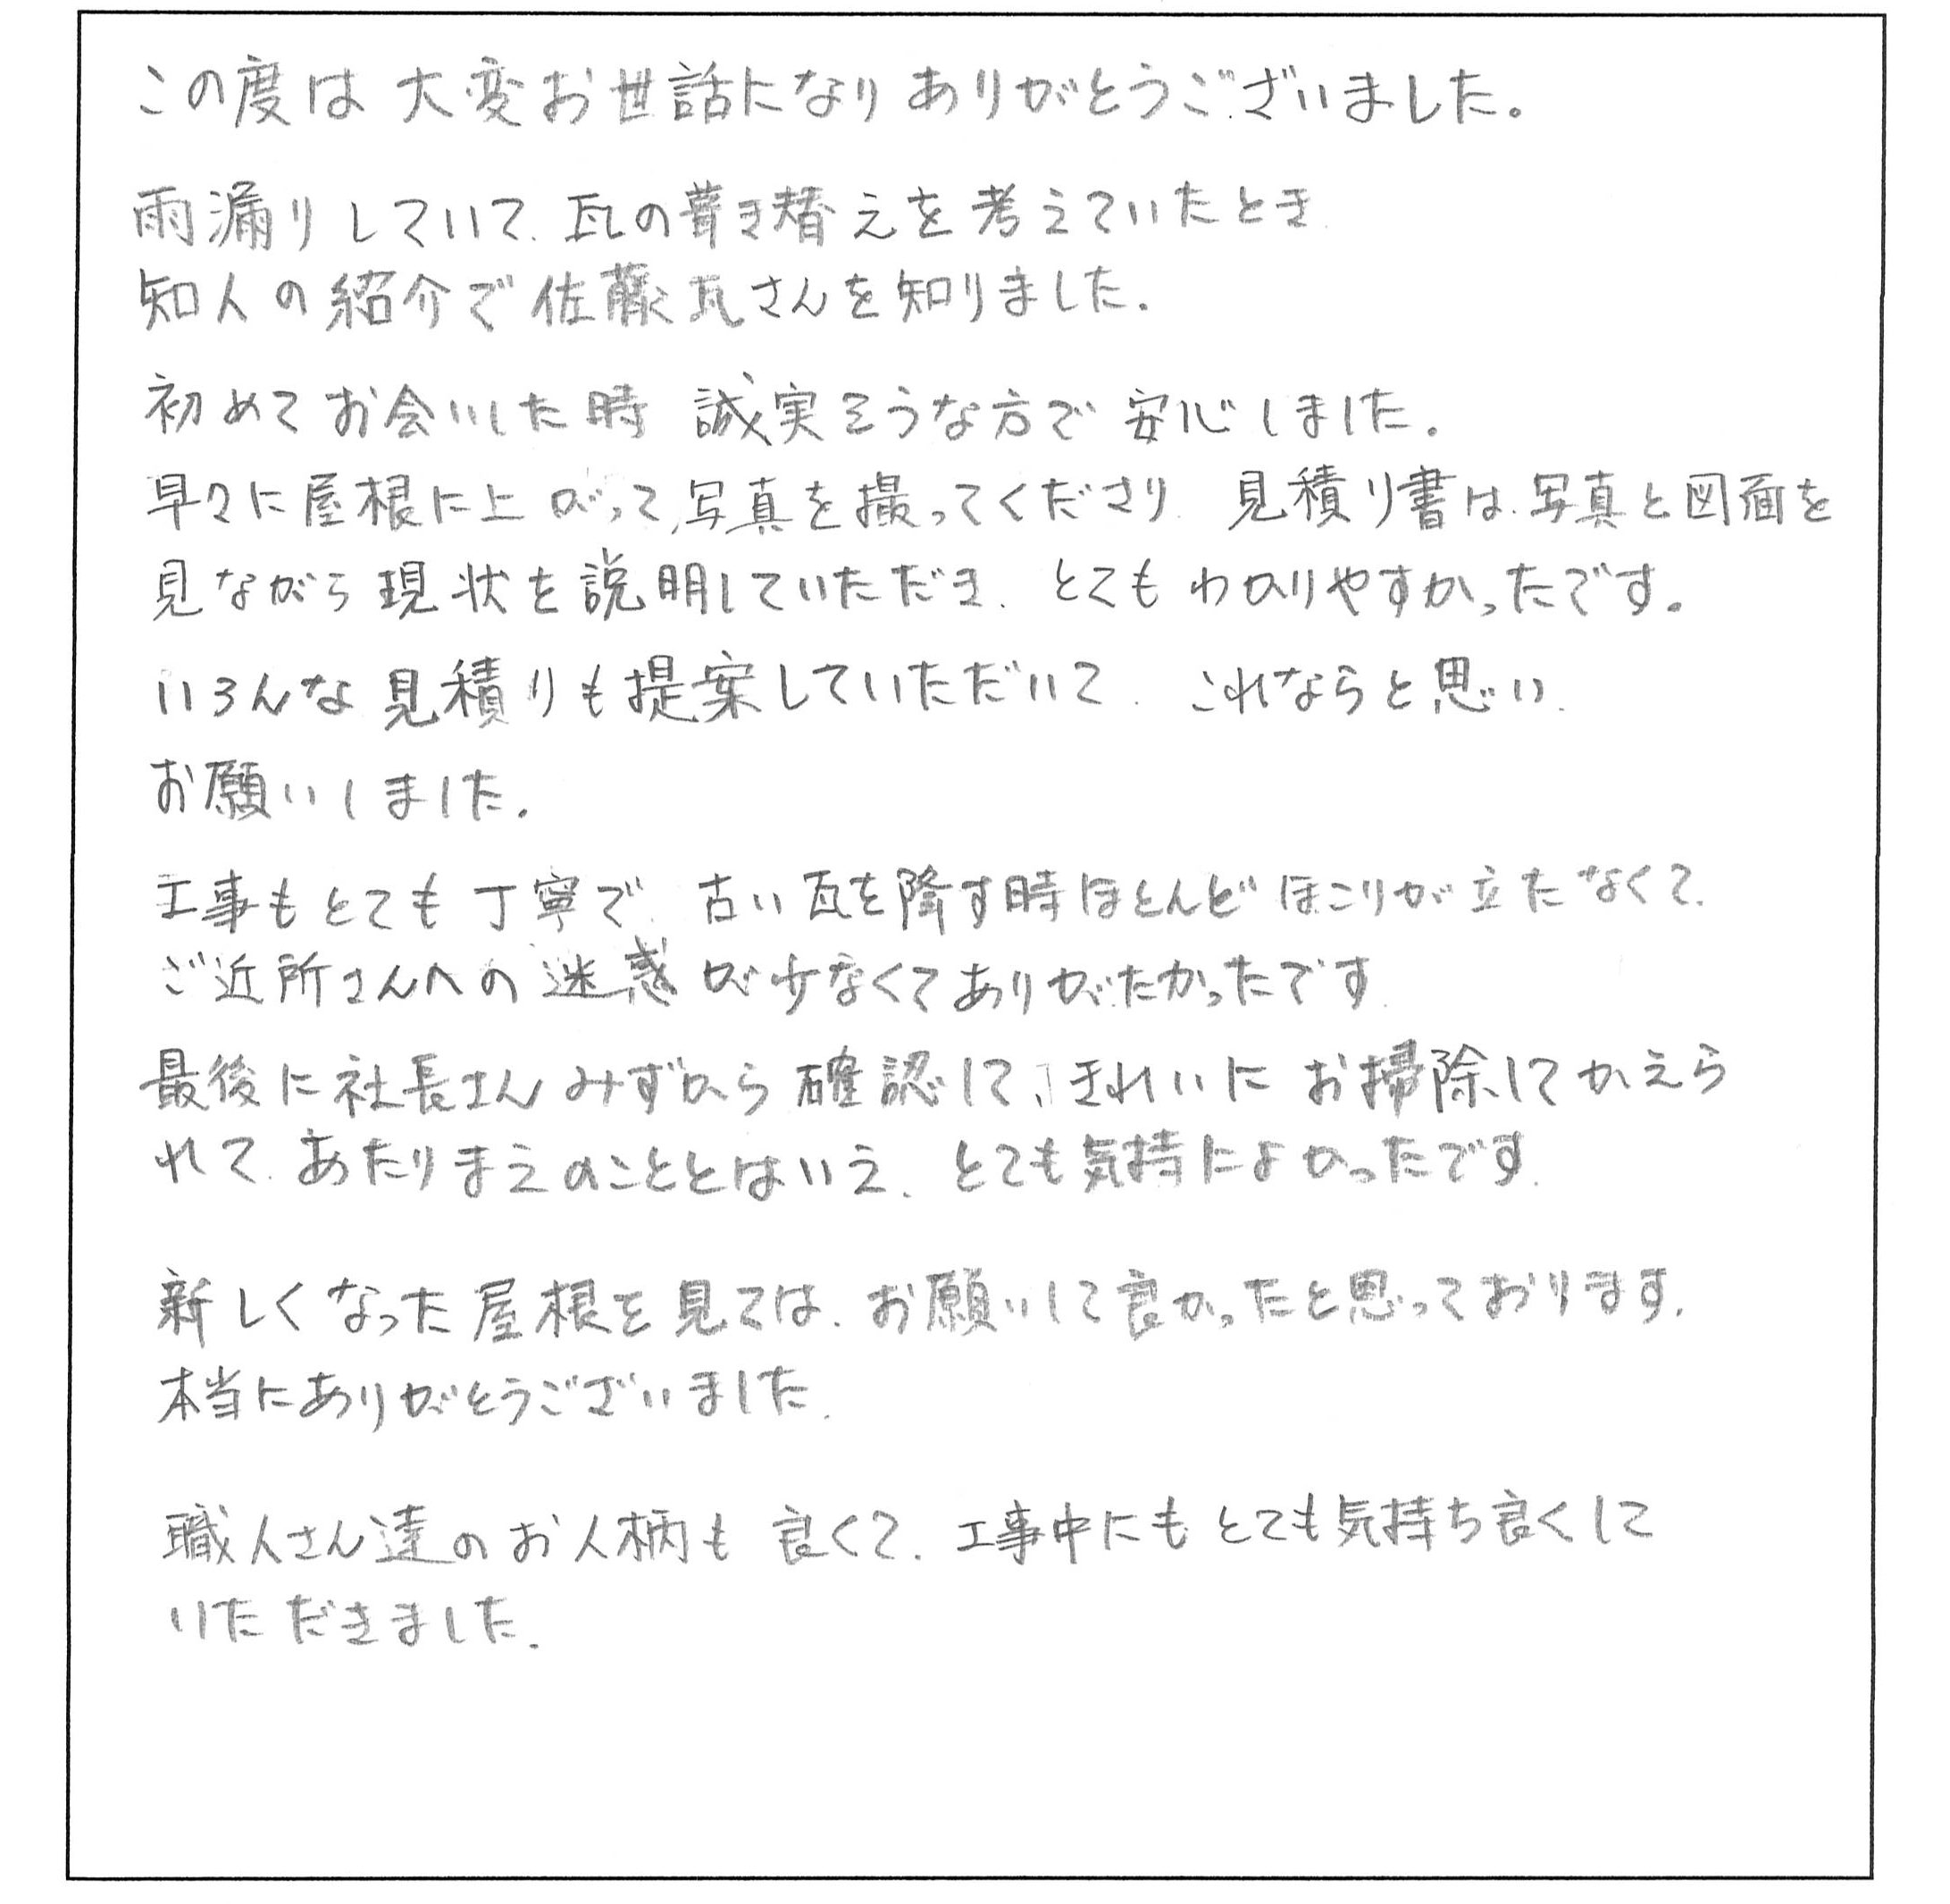 この度は 大変お世話になり ありがとうございました。
雨漏りしていて、瓦の葺き替えを考えていたとき
知人の紹介で佐藤瓦さんを知りました。
初めてお会いした時 誠実そうな方で 安心しました。
早々に屋根に上がって、写真を撮ってくださり 見積り書は、写真と図面を
見ながら現状を説明していただき、とてもわかりやすかったです。
いろんな見積りも提案していただいて、これならと思い、
お願いしました。
工事もとても丁寧で、古い瓦を降す時ほとんどほこりが立たなくて、
ご近所さんへの迷惑が少なくてありがたかったです
最後に社長さんみずから確認して、きれいにお掃除してかえら
れて、あたりまえのこととはいえ、とても気持によかったです。
新しくなった屋根を見ては、お願いして良かったと思っております。
本当にありがとうございました。
職人さん達のお人柄も良くて、工事中にもとても気持ち良くして
いただきました。